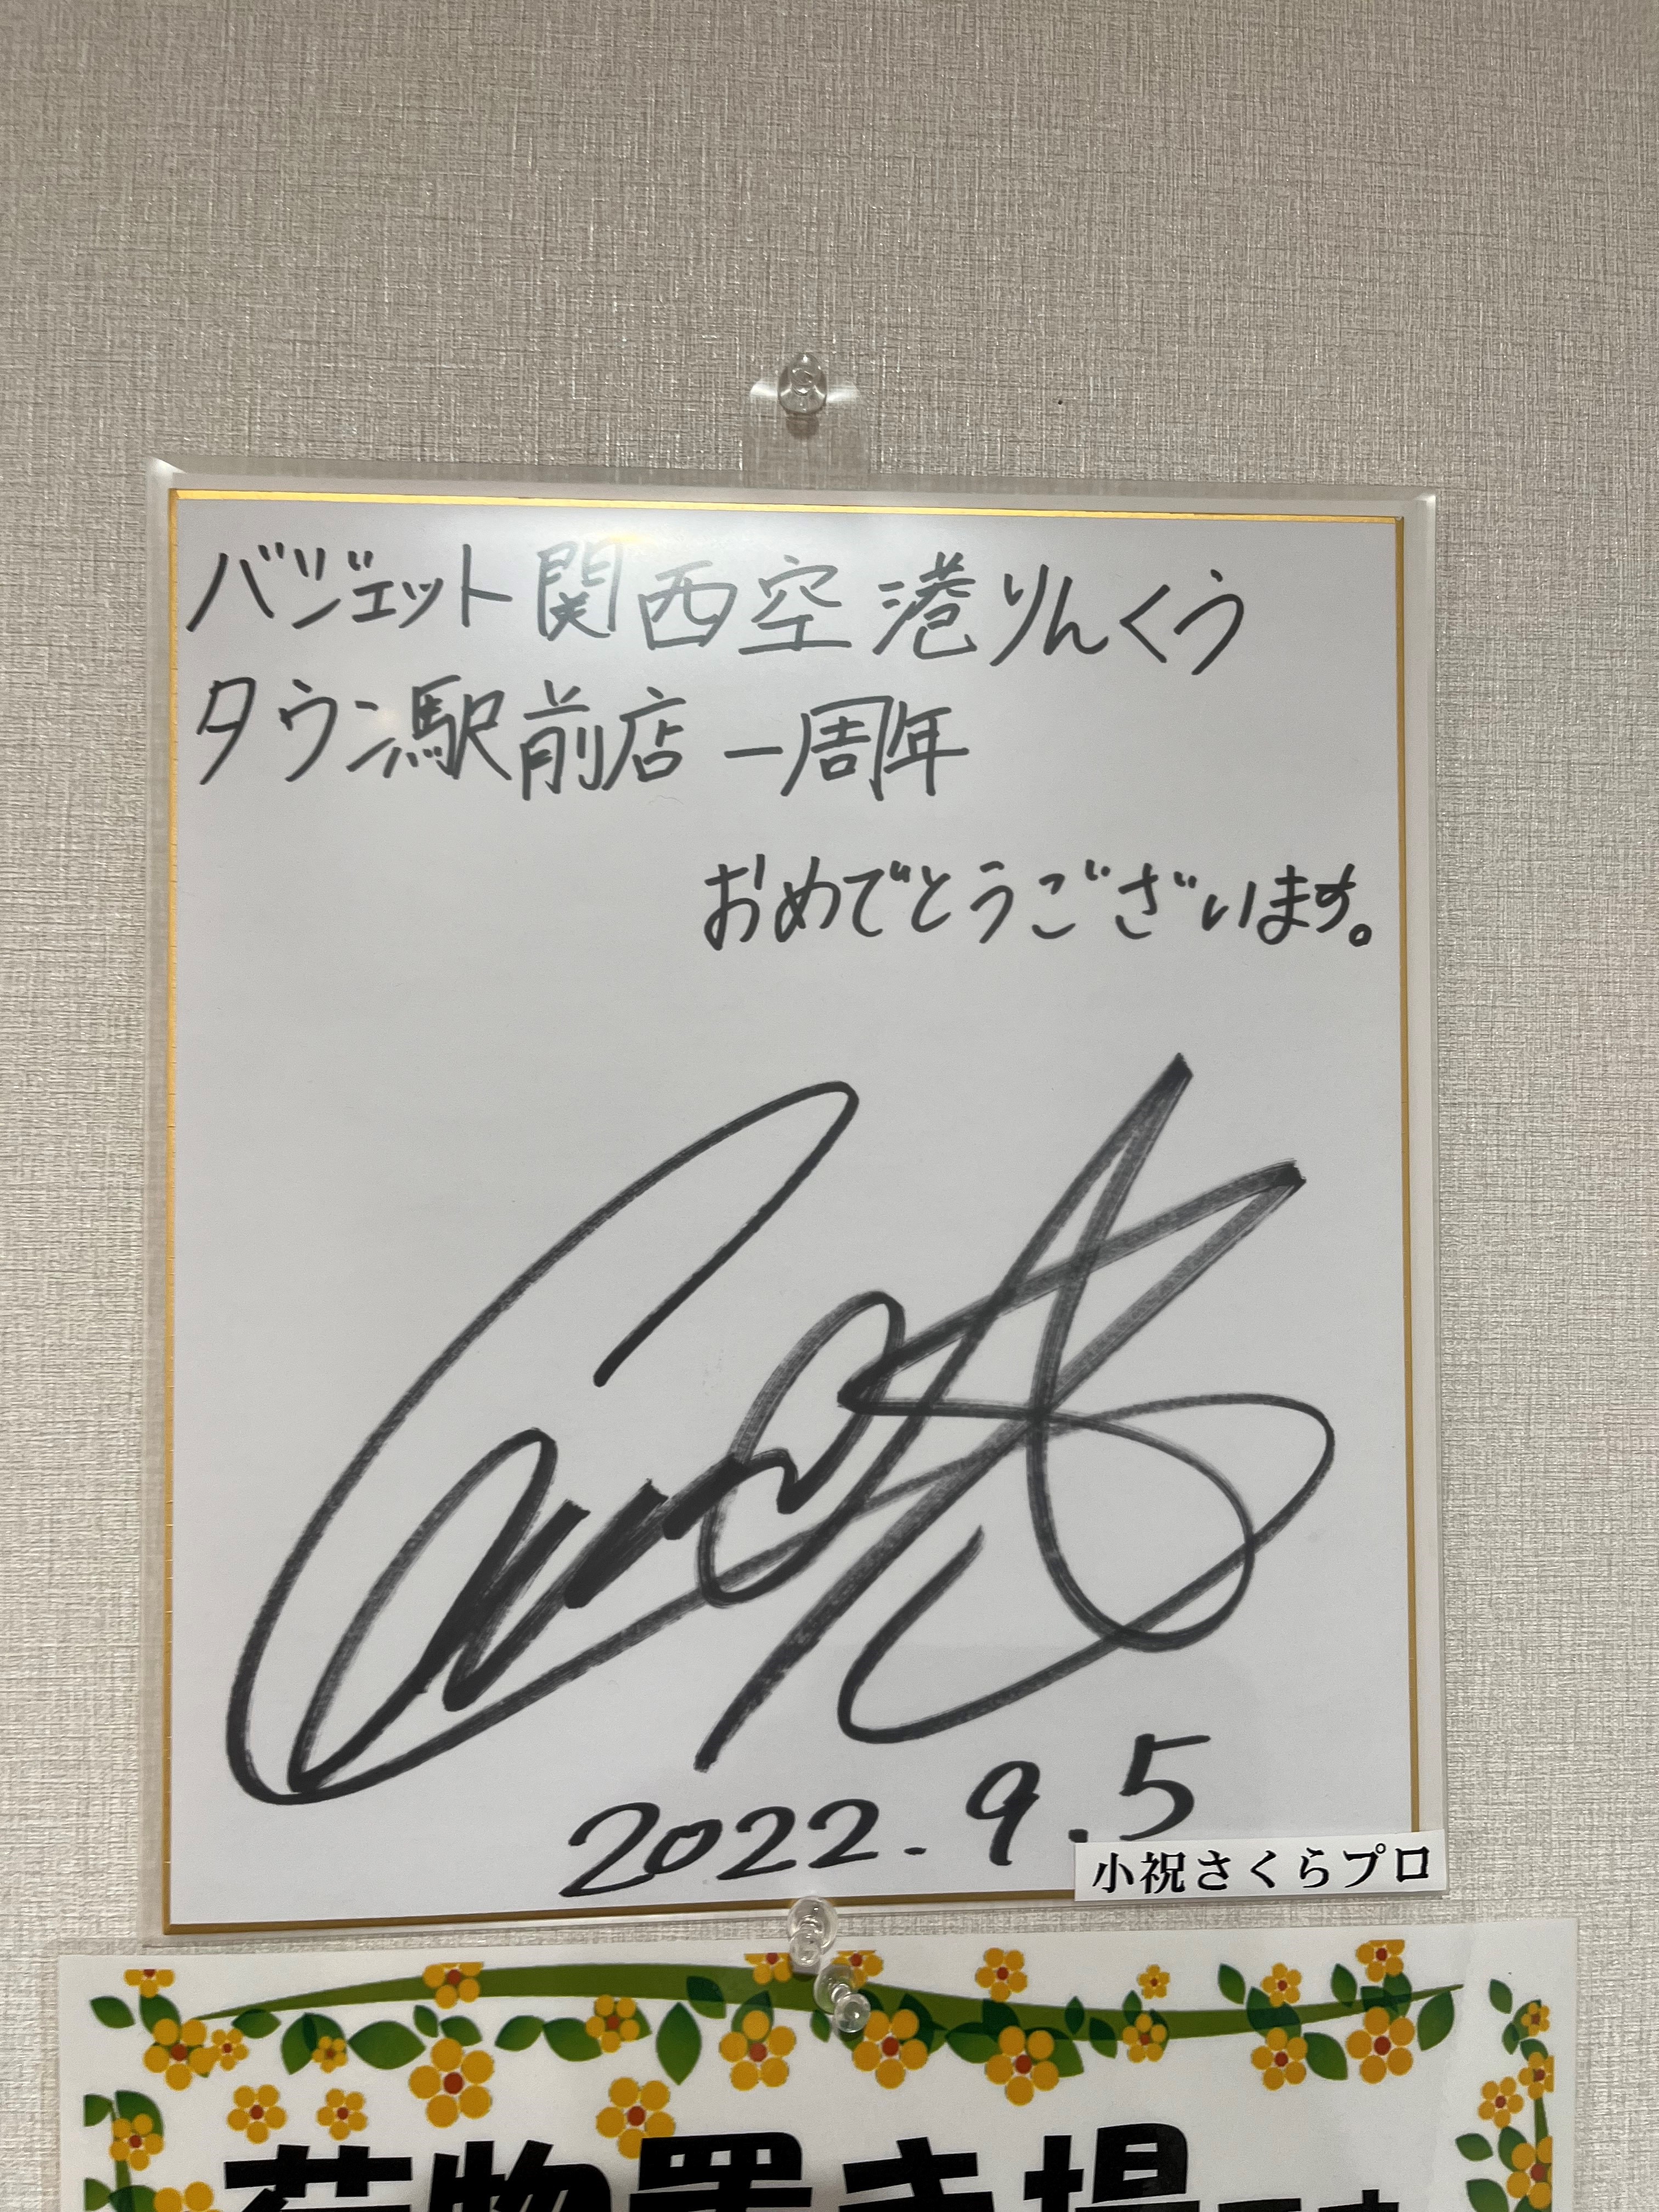 バジェット関西空港りんくう
タウン駅前店 一周年
おめでとうございます。
2022.9.5
小祝さくらプロ
荷物置き場